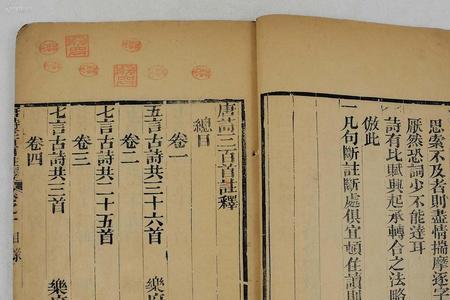 思索不及者則盡情揣摩逐字
厭然恐詞少不能達耳
詩有比賦興起承轉合之法略
倣此
一凡句斷註斷處俱宜頓住讀則
唐詩三百首註釋
總目
卷一
五言古詩共三十六首 樂府
卷二
七言古詩共二十五首
卷三
七言古詩共三首 樂府
卷四